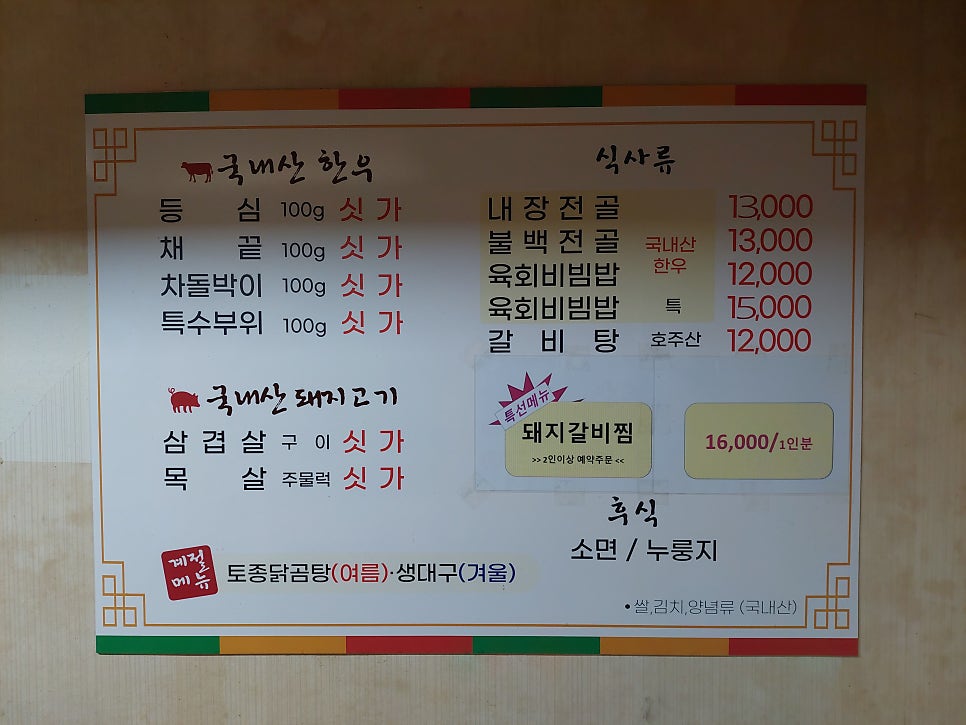 국내산 한우
등심 100g 싯가
채끝 100g 싯가
차돌박이 100g 싯가
특수부위 100g 싯가
국내산 돼지고기
삼겹살 구이 싯가
목살 주물럭 싯가
계절
메뉴
토종닭곰탕(여름)·생대구(겨울)
식사류
내장전골 13,000
불백전골 13,000
국내산
한우
육회비빔밥 12,000
육회비빔밥 특 15,000
갈비탕 호주산 12,000
특선메뉴
돼지갈비찜 16,000/1인분
>> 2인이상 예약주문 <<
후식
소면 / 누룽지
• 쌀,김치,양념류 (국내산)